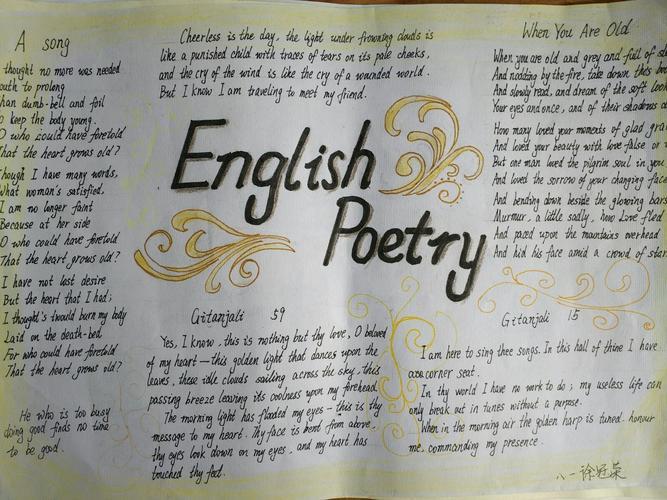 A song
thought no more was needed
outh to prolong
han dumb-bell and foil
o keep the body young.
O who could have foretold
That the heart grows old?
hough I have many words,
What woman's satisfied.
I am no longer faint
Because at her side
O who could have foretold
That the heart grows old?
I have not lost desire
But the heart that I had;
I thought's twould burn my body
Laid on the death-bed
For who could have foretold
That the heart grows old?
He who is too busy
doing good finds no time
to be good.
Cheerless is the day, the light under frowning clouds is
like a punished child with traces of tears on its pale cheeks,
and the cry of the wind is like the cry of a wounded world.
But I know I am traveling to meet my friend.
English
Poetry
Gitanjali 59
Yes, I know, this is nothing but thy love, O beloved
of my heart—this golden light that dances upon the
leaves, these idle clouds sailing across the sky, this
passing breeze leaving its coolness upon my forehead.
The morning light has flooded my eyes—this is thy
message to my heart. Thy face is bent from above,
thy eyes look down on my eyes, and my heart has
touched thy feet.
When You Are Old
When you are old and grey and full of sl
And nodding by the fire, take down this boo
And slowly read, and dream of the soft look
Your eyes and once, and of their shadows d
How many loved your moments of glad gra
And loved your beauty with love false or
But one man loved the pilgrim soul in you
And loved the sorrow of your changing face
And bending down beside the glowing bars
Murmur, a little sadly, how Love fled
And paced upon the mountains overhead
And hid his face amid a crowd of star
Gitanjali 15
I am here to sing thee songs. In this hall of thine I have
a corner seat.
In thy world I have no work to do; my useless life can
only break out in tunes without a purpose.
When in the morning air the golden harp is tuned. honour
me. commanding my presence.
八一徐冠荣